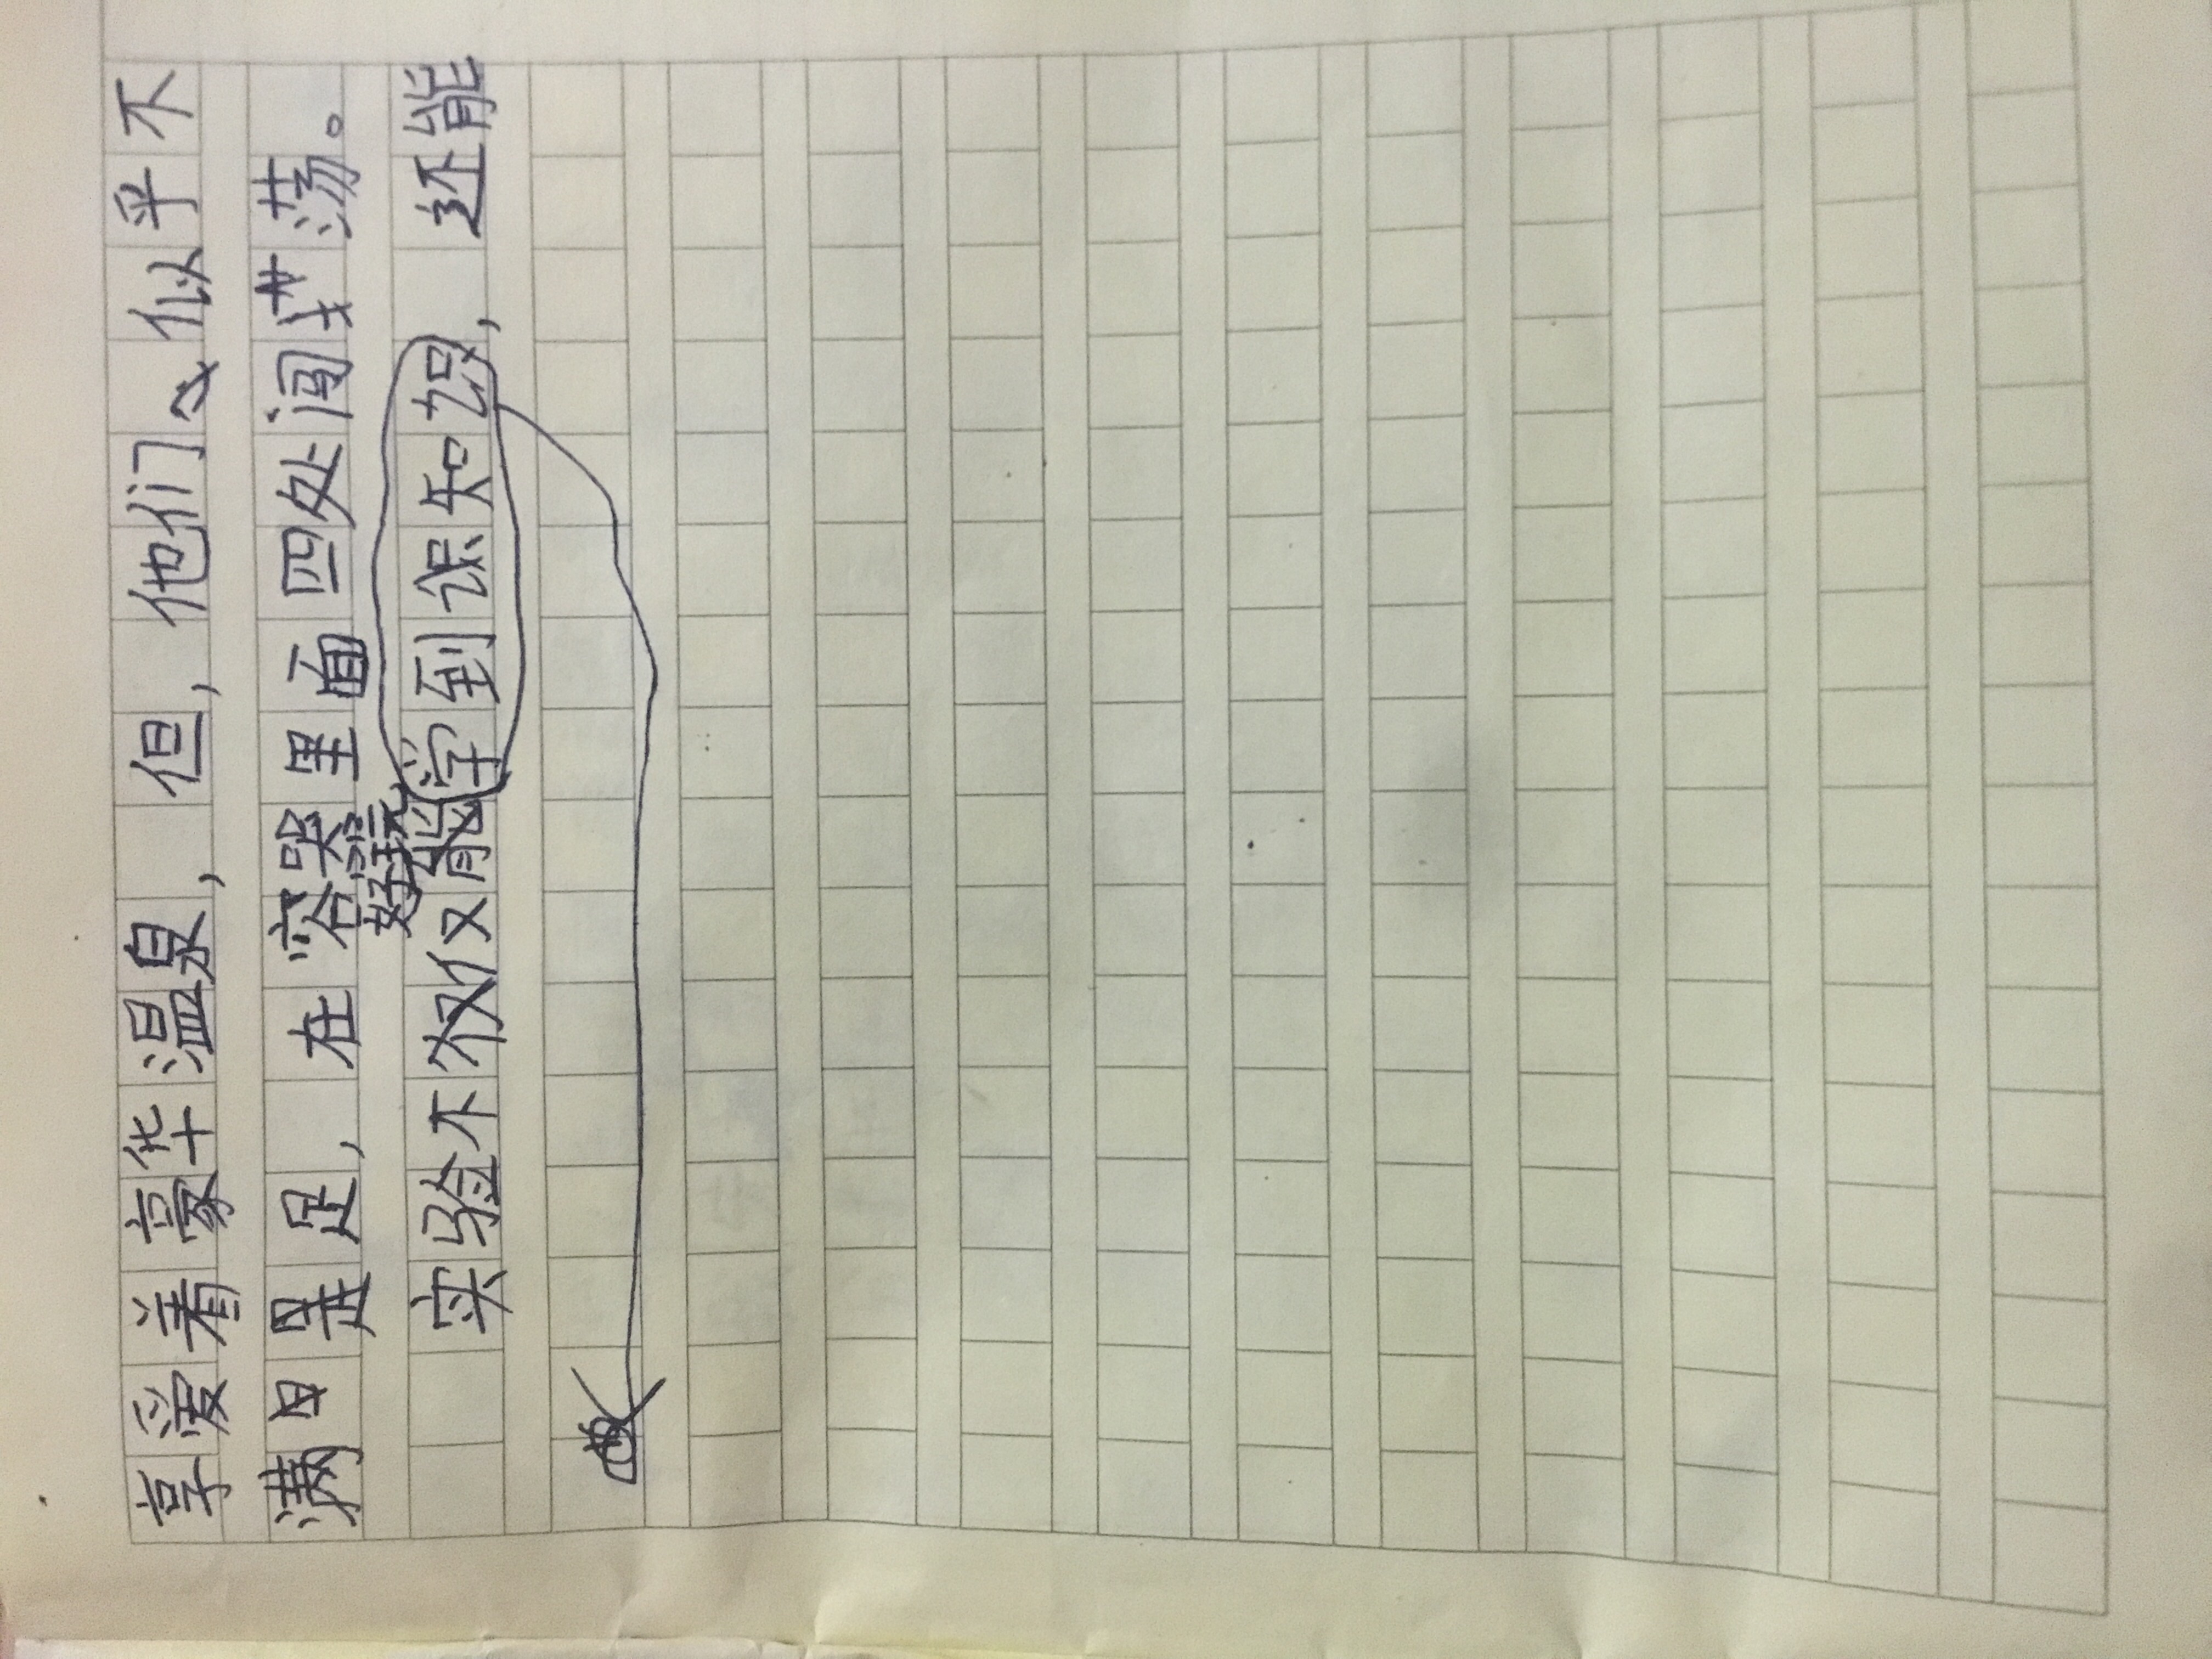 享受着豪华温泉，但，他们似乎不
满足，在容器里面四处闯荡。
好玩
实验不仅学到知识，还能